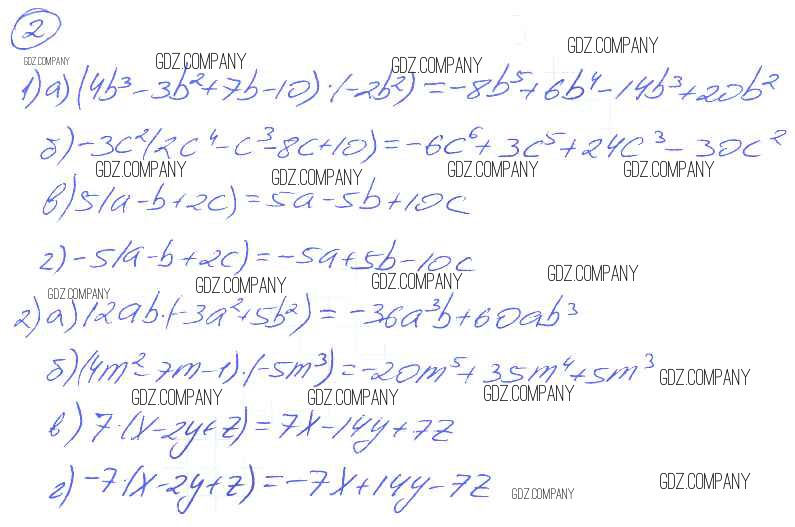 2
GDZ.COMPANY GDZ.COMPANY GDZ.COMPANY GDZ.COMPANY
1) а) (4b³ - 3b² + 7b - 10) · (-2b²) = -8b⁵ + 6b⁴ - 14b³ + 20b²
б) -3c²(2c⁴ - c³ - 8c + 10) = -6c⁶ + 3c⁵ + 24c³ - 30c²
GDZ.COMPANY GDZ.COMPANY GDZ.COMPANY GDZ.COMPANY
в) 5(a - b + 2c) = 5a - 5b + 10c
г) -5(a - b + 2c) = -5a + 5b - 10c
GDZ.COMPANY GDZ.COMPANY GDZ.COMPANY GDZ.COMPANY
2) а) 12ab · (-3a² + 5b²) = -36a³b + 60ab³
б) (4m² - 7m - 1) · (-5m³) = -20m⁵ + 35m⁴ + 5m³
GDZ.COMPANY GDZ.COMPANY GDZ.COMPANY GDZ.COMPANY
в) 7 · (x - 2y + z) = 7x - 14y + 7z
г) -7 · (x - 2y + z) = -7x + 14y - 7z
GDZ.COMPANY GDZ.COMPANY